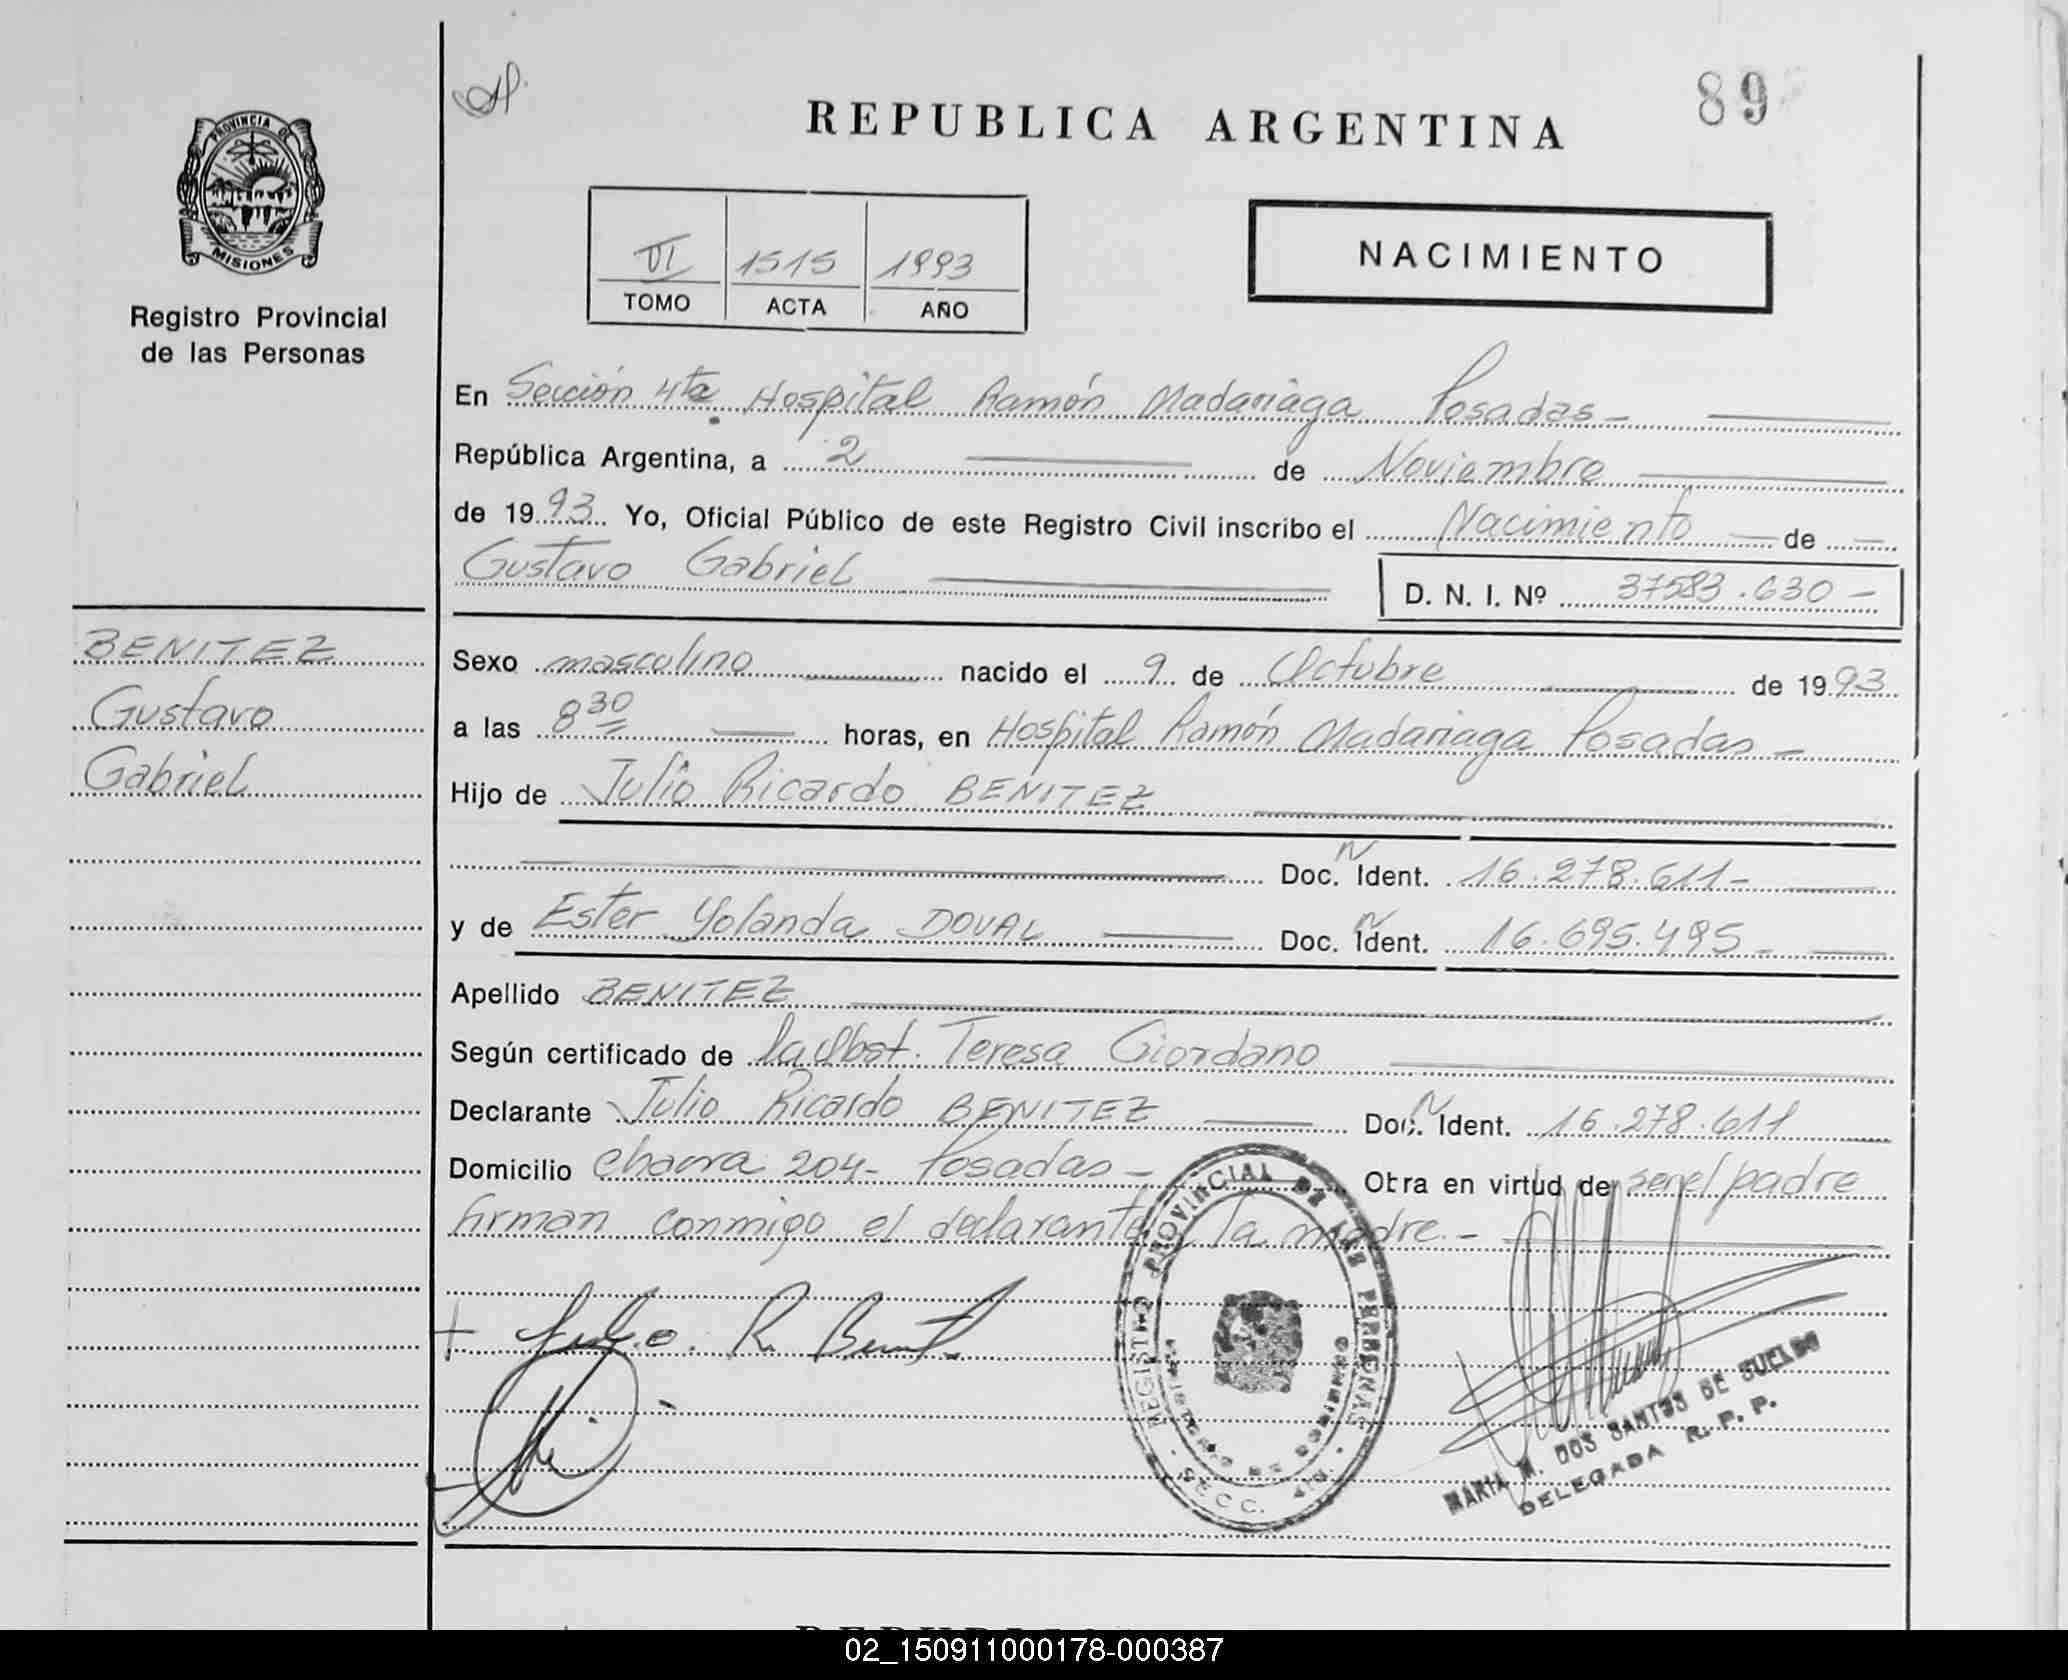 89
REPUBLICA ARGENTINA
PROVINCIA DE
MISIONES
Registro Provincial
de las Personas
VI 1515 1993
TOMO ACTA AÑO
NACIMIENTO
En Sección 4ta Hospital Ramón Madariaga Posadas
República Argentina, a 2 de Noviembre
de 1993 Yo, Oficial Público de este Registro Civil inscribo el Nacimiento de
Gustavo Gabriel D. N. I. Nº 37583.630
BENITEZ
Gustavo
Gabriel
Sexo masculino nacido el 9 de Octubre de 1993
a las 8 30 horas, en Hospital Ramón Madariaga Posadas
Hijo de Julio Ricardo BENITEZ
Doc. N Ident. 16.278.611
y de Ester Yolanda DOVAL Doc. N Ident. 16.695.495
Apellido BENITEZ
Según certificado de la Obst. Teresa Giordano
Declarante Julio Ricardo BENITEZ Doc. N Ident. 16.278.611
Domicilio Chacra 204- Posadas Otra en virtud de ser el padre
firman conmigo el declarante la madre.
Julio R. Benit.
REGISTRO PROVINCIAL DE LAS PERSONAS
SECC.
MARIA M. DOS SANTOS DE SUELDO
DELEGADA R. P. P.
02_150911000178-000387